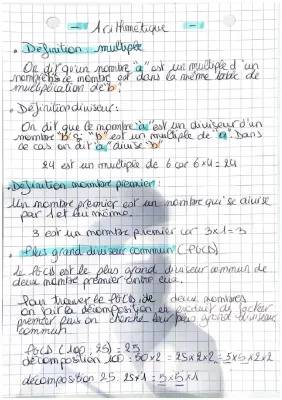 — Arithmétique —
• Définition : multiple
On dit qu'un nombre "a" est un multiple d'un
nombre si ce nombre est dans la même table de
multiplication de "b".
• Définition diviseur :
On dit que le nombre "a" est un diviseur d'un
nombre "b" si "b" est un multiple de "a". Dans
ce cas on dit "a" divise "b"
24 est un multiple de 6 car 6x4=24
• Définition nombre premier
Un nombre premier est un nombre qui se divise
par 1 et lui même.
3 est un nombre premier car 3x1=3
• Plus grand diviseur commun (PGCD)
Le PGCD est le plus grand diviseur commun de
deux nombre premier entre eux.
Pour trouver le PGCD de deux nombres
on fait la décomposition en produit de facteur
premier puis on cherche leur plus grand diviseur
commun
PGCD (100 ; 25) = 25
décomposition 100 = 50x2 = 25x2x2 = 5x5x2x2
décomposition 25 : 25x1 = 5x5x1